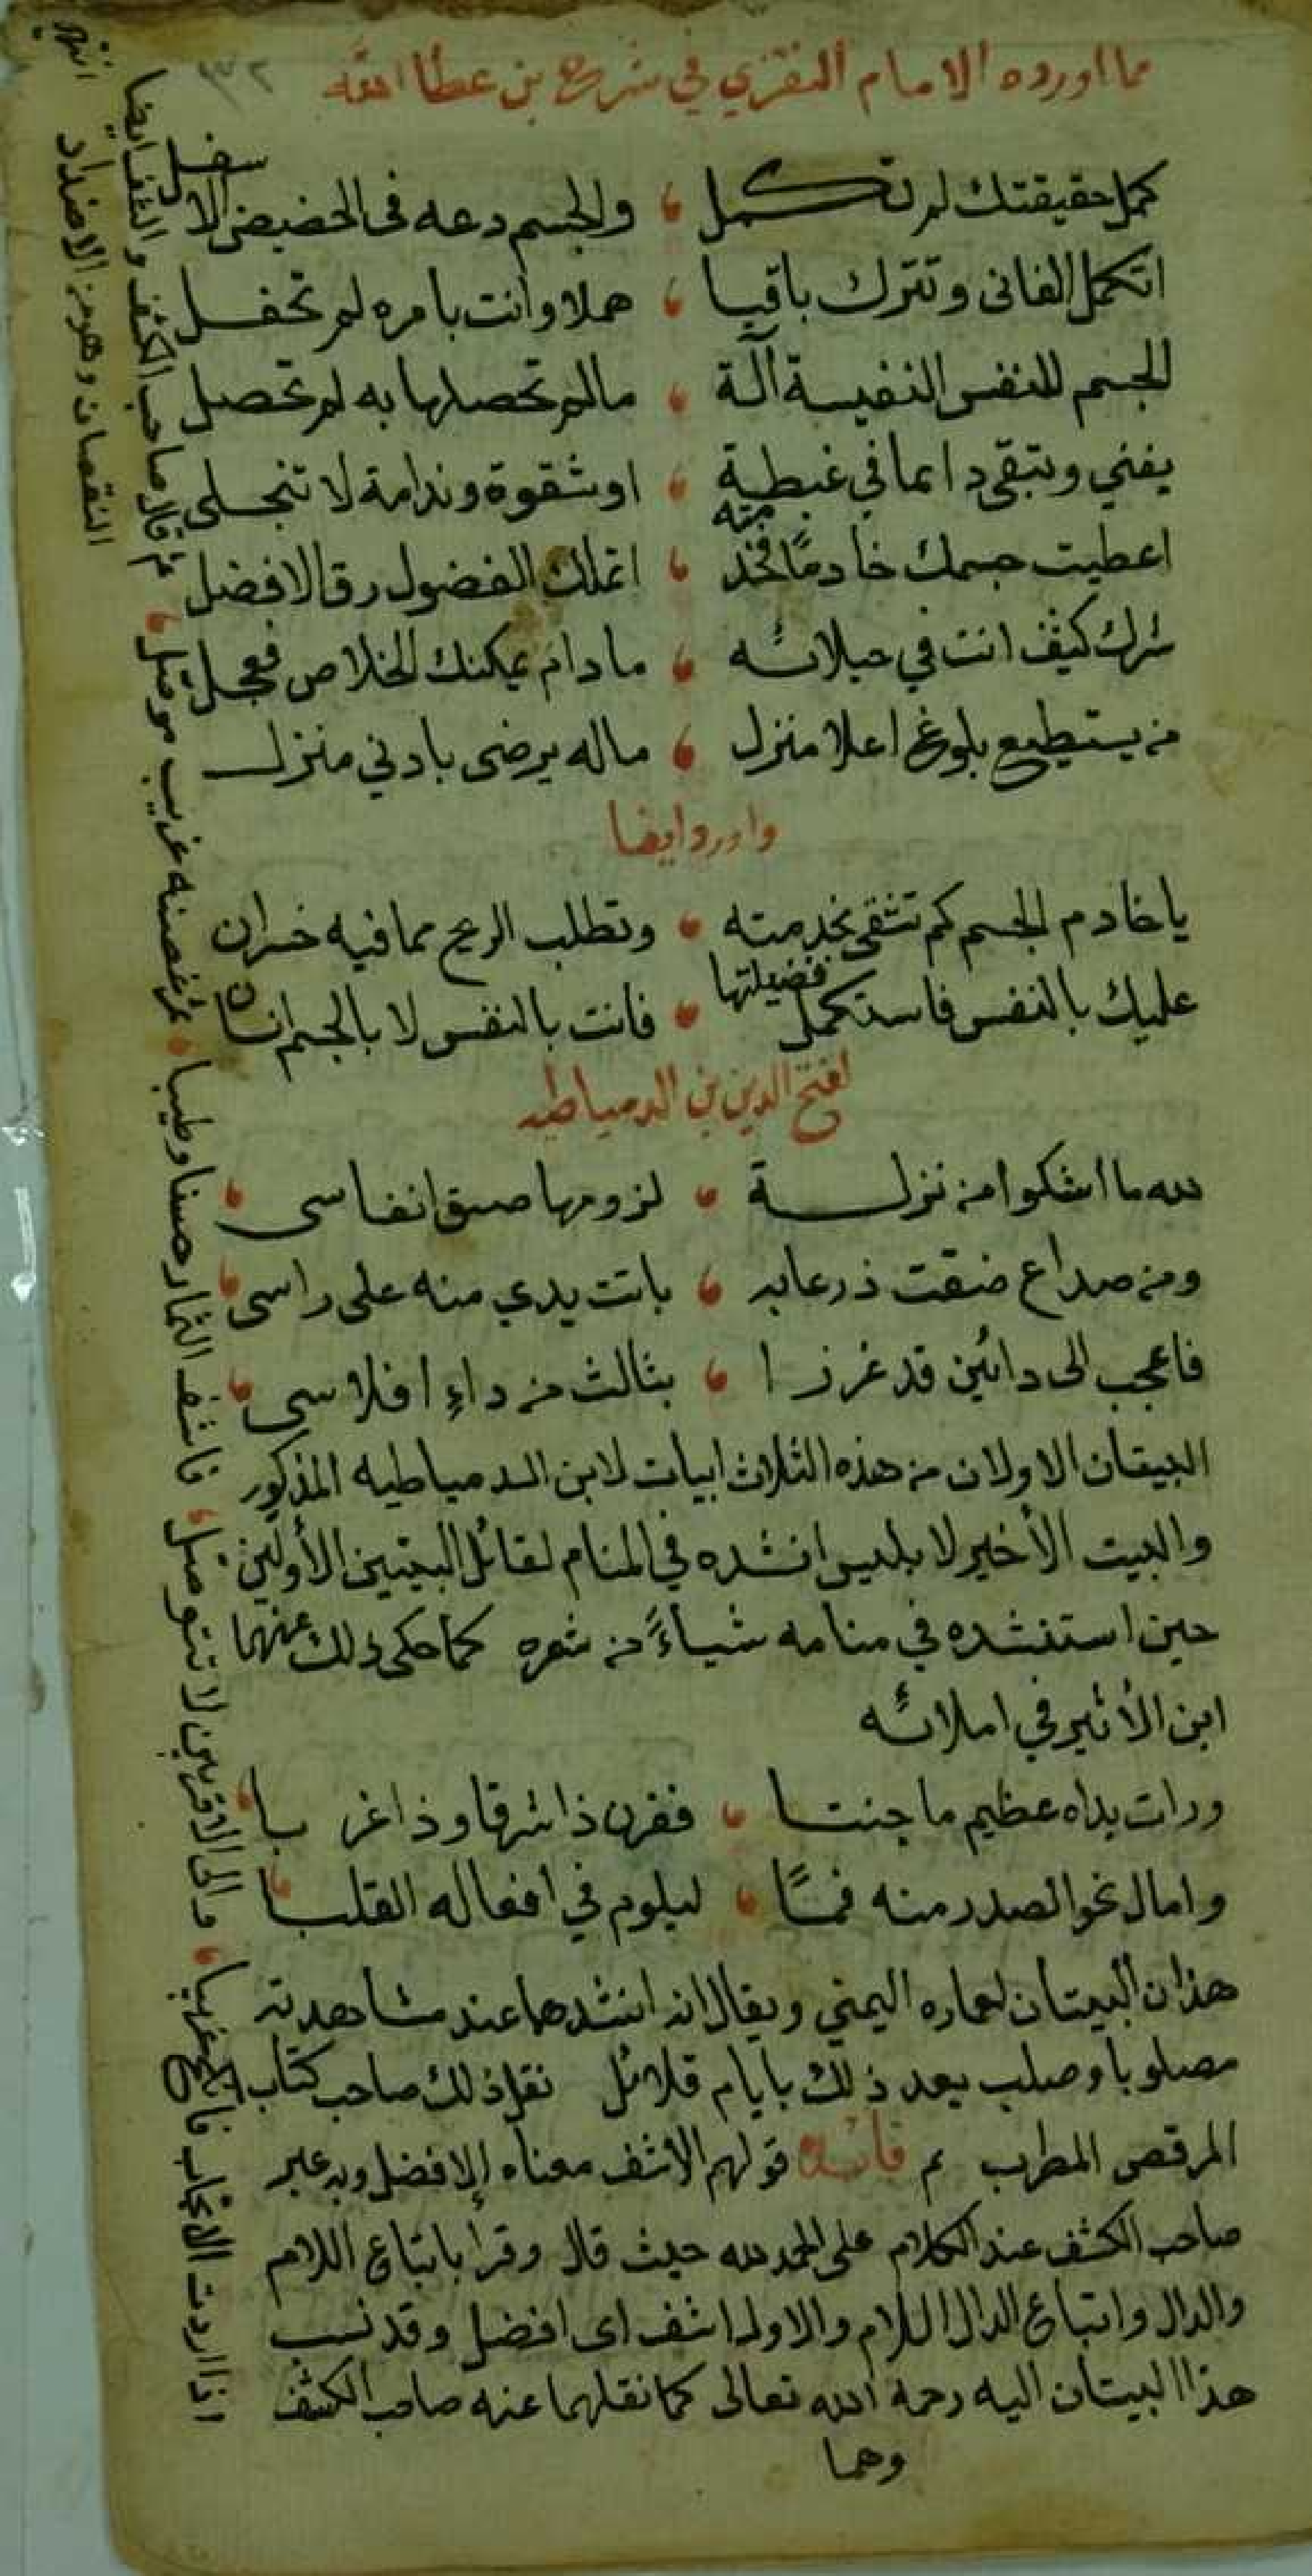 مما اورده الامام النفزي في شرح بن عطا الله
كمل حقيقتك لم تكمل والجسم دعه فى الحضيض الاسفل
اتكمل الفانى وتترك باقيا هملا وانت بامره لم تحفل
الجسم للنفس النفيسة آلة مالم تحصلها به لم تحصل
يفني وتبقى دايما في غبطة اوشقوة وندامة لا تنجلى
اعطيت جسمك خادمًا فخذ منه اتملك الفضول رقا لافضل
شرك كثيف انت في حبلاته مادام يمكنك الخلاص فعجل
من يستطيع بلوغ اعلا منزل ماله يرضى بادني منزل
واورد ايضا
ياخادم الجسم كم تشقى بخدمته وتطلب الربح مما فيه خسران
عليك بالنفس فاستكمل فضيلتها فانت بالنفس لا بالجسم انسان
لفتح الدين بن الدمياطيه
لله ما اشكوا من نزلة لزومها ضيق انفاسى
ومن صداع ضقت ذرعا به باتت يدي منه على راسى
فاعجب الى دائين قد عززا بثالث من داءِ افلاسى
البيتان الاولان من هذه الثلاث ابيات لابن الدمياطيه المذكور
والبيت الأخير لابليس انشده في المنام لقائل البيتين الأولين
حين استنشده في منامه شياءً من شعره كما حكى ذلك عنهما
ابن الأثير في املائه
ورات يداه عظيم ما جنتا ففرن ذا شرقا وذا غربا
وامال نحو الصدر منه فمًا ليلوم في افعاله القلبا
هذان البيتان لعماره اليمني ويقال انه انشدهما عند مشاهدته
مصلوبا وصلب بعد ذلك بايام قلائل نقل ذلك صاحب كتاب
المرقص المطرب م فائدة قولهم الاشف معناه إلافضل وبه عبر
صاحب الكشف عند الكلام على الحمد لله حيث قال وقرا باتباع اللام
والدال واتباع الدال اللام والاول اشف اى افضل وقد نسب
هذا البيتان اليه رحمة الله تعالى كما نقلهما عنه صاحب الكشف
وهما
اذا اردت الانجاب فانكح غريبا والى الاقربين لا تتوصل
فاشف الثمار حسنا وطيبا ثمر غصنه غريب موصل
ثم قال صاحب الكشف والشف ايضا
النقصان وهو من الاضداد
انتهى